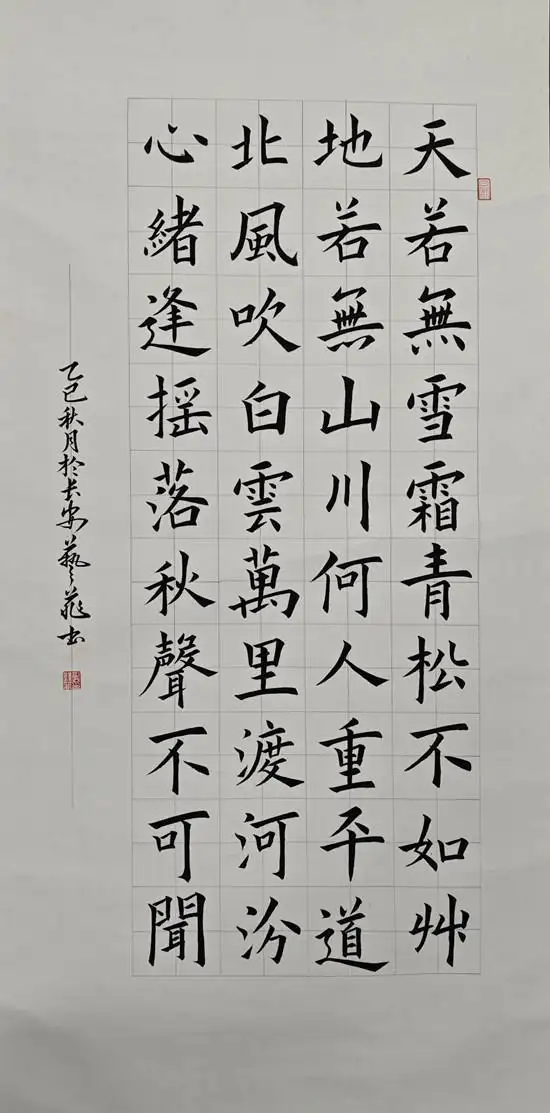 天若無雪霜青松不如艸
地若無山川何人重平道
北風吹白雲萬里渡河汾
心緒逢摇落秋聲不可聞
乙巳秋月於长安藝菲书